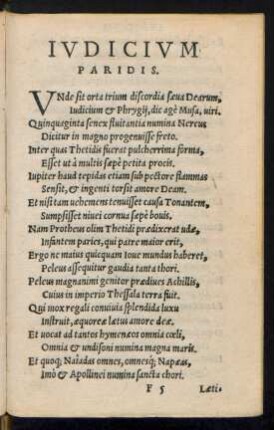 IVDICIVM
PARIDIS.
VNde sit orta trium discordia sæua Dearum,
Iudicium & Phrygij, dic agè Musa, uiri.
Quinquaginta senex fluitantia numina Nereus
Dicitur in magno progenuisse freto.
Inter quas Thetidis fuerat pulcherrima forma,
Esset ut à multis sæpè petita procis.
Iupiter haud tepidas etiam sub pectore flammas
Sensit, & ingenti torsit amore Deam.
Et nisi tam uehemens tenuisset causa Tonantem,
Sumpsisset niuei cornua sæpè bouis.
Nam Protheus olim Thetidi prædixerat udæ,
Infantem paries, qui patre maior erit,
Ergo ne maius quicquam Ioue mundus haberet,
Peleus assequitur gaudia tanta thori.
Peleus magnanimi genitor prædiues Achillis,
Cuius in imperio Thessala terra fuit.
Qui mox regali conuiuia splendida luxu
Instruit, æquoreæ lætus amore deæ.
Et uocat ad tantos hymenæos omnia cœli,
Omnia & undisoni numina magna maris.
Et quoq; Naiadas omnes, omnesq; Napæas,
Imò & Apollinei numina sancta chori.
F 5 Læti-